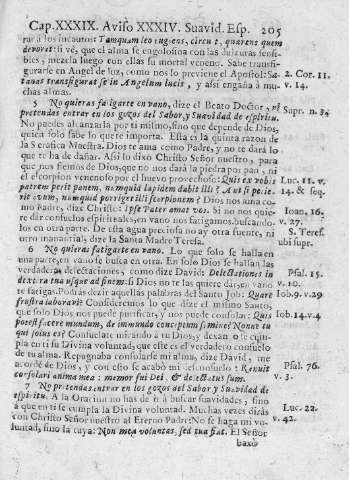 Cap. XXXIX. Aviso XXXIV. Suavid. Esp. 205
rar à los incautos: Tamquam leo rugiens, circuit, quarens quem
devoret: si vè, que el alma se engolosina con las dulzuras sensi-
bles, mezcla luego con ellas su mortal veneno. Sabe transfi-
gurarse en Angel de luz, como nos lo previene el Apostol: Sa-
tanas transfigurat se in Angelum lucis, y assi engaña à mu-
chas almas.
2. Cor. 11. v. 14.
5 No quieras fatigarte en vano, dize el Beato Doctor, ni
pretendas entrar en los gozos del Sabor, y Suavidad de espiritu.
Supr. n. 34
No puedes alcanzarla por ti mismo, sino que depende de Dios,
quien solo sabe lo que te importa. Esta es la quinta razon de
la Serafica Maestra. Dios te ama como Padre, y no te dará lo
que te ha de dañar. Assi lo dixo Christo Señor nuestro, para
que nos fiemos de Dios; que no nos dará la piedra por pan, ni
el escorpion venenoso por el huevo provechoso: Quis ex vobis
patrem petit panem, numquid lapidem dabit illi? Aut si petie-
rit ovum, numquid porriget illi scorpionem? Dios nos ama co-
mo Padre, dize Christo: Ipse Pater amat vos. Si no nos quie-
re dar consuelos espirituales, en vano nos fatigamos, buscando-
los en otra parte. De esta agua preciosa no ay otra fuente, ni
otro manantial, dize la Santa Madre Teresa.
Luc. 11. v. 14. & seq.
Ioan. 16. v. 27.
S. Teres. ubi supr.
6 No quieras fatigarte en vano. Lo que solo se halla en
una parte, en vano se busca en otra. En solo Dios se hallan las
verdaderas delectaciones, como dize David: Delectationes in
dextera tua usque ad finem: si Dios no te las quiere dar, en vano
te fatigas. Podràs dezir aquellas palabras del Santo Job: Quare
frustra laboravi? Consideremos lo que dize el mismo Santo,
que solo Dios nos puede purificar, y nos puede consolar: Quis
potest facere mundum, de immundo conceptum semine? Nonne tu
qui solus es? Consuelate mirando à tu Dios, y dexando te cum-
pla en ti su Divina voluntad, que este es el verdadero consuelo
de tu alma. Repugnaba consolarse mi alma, dize David, me
acordè de Dios, y con esto se acabò mi desconsuelo: Renuit
consolari anima mea: memor fui Dei, & delectatus sum.
Psal. 15. v. 10.
Iob. 9. v. 29.
Iob. 14. v. 4
Psal. 76. v. 3.
7 No pretendas entrar en los gozos del Sabor, y Suavidad de
espiritu. A la Oracion no has de ir à buscar suavidades, sino
à que en ti se cumpla la Divina voluntad. Muchas vezes diràs
con Christo Señor nuestro al Eterno Padre: No se haga mi vo-
luntad, sino la tuya: Non mea voluntas, sed tua fiat. El Señor
Luc. 22. v. 42.
baxò